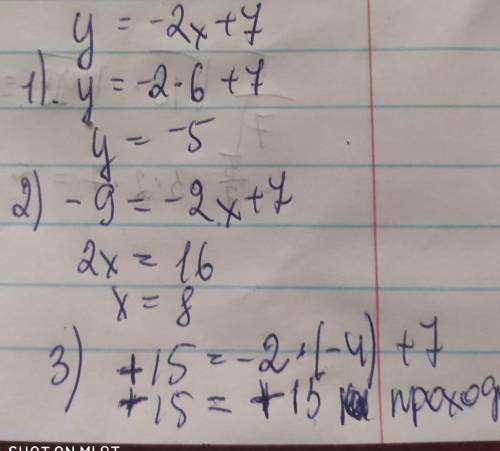 y = -2x+7
1). y = -2·6+7
y = -5
2) -9 = -2x+7
2x = 16
x = 8
3) +15 = -2·(-4) +7
+15 = +15 проход
SHOT ON MI 9T